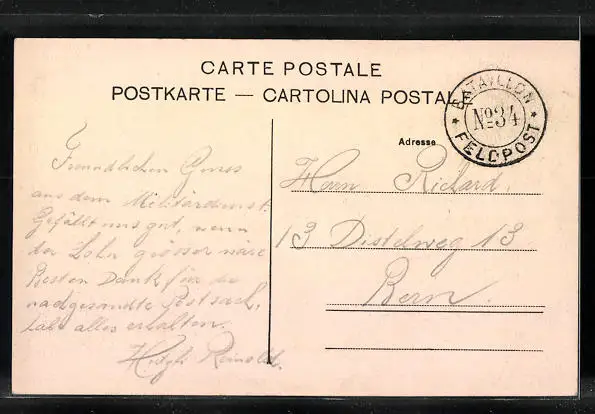 CARTE POSTALE
POSTKARTE — CARTOLINA POSTALE
BATAILLON
No 34
FELDPOST
Adresse
Freundlichen Gruss
aus dem Militärdienst.
Gefällt uns gut, wenn
der Lohn grösser wäre
Besten Dank für die
nachgesandte Postsach,
habe alles erhalten.
Reinold.
Herrn Richard.
13 Distelweg 13
Bern.